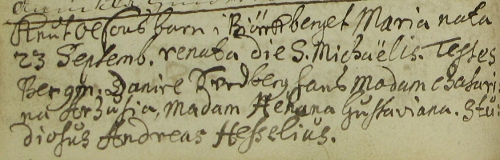 Knut Olsons barn i Björkberget Maria nata
23 Septemb. renata die S. Michaëlis. Testes
Bergm: Daniel hans Madam Catari
na Madam Helena Gustaviana. Stu
diosus Andreas Hesselius.